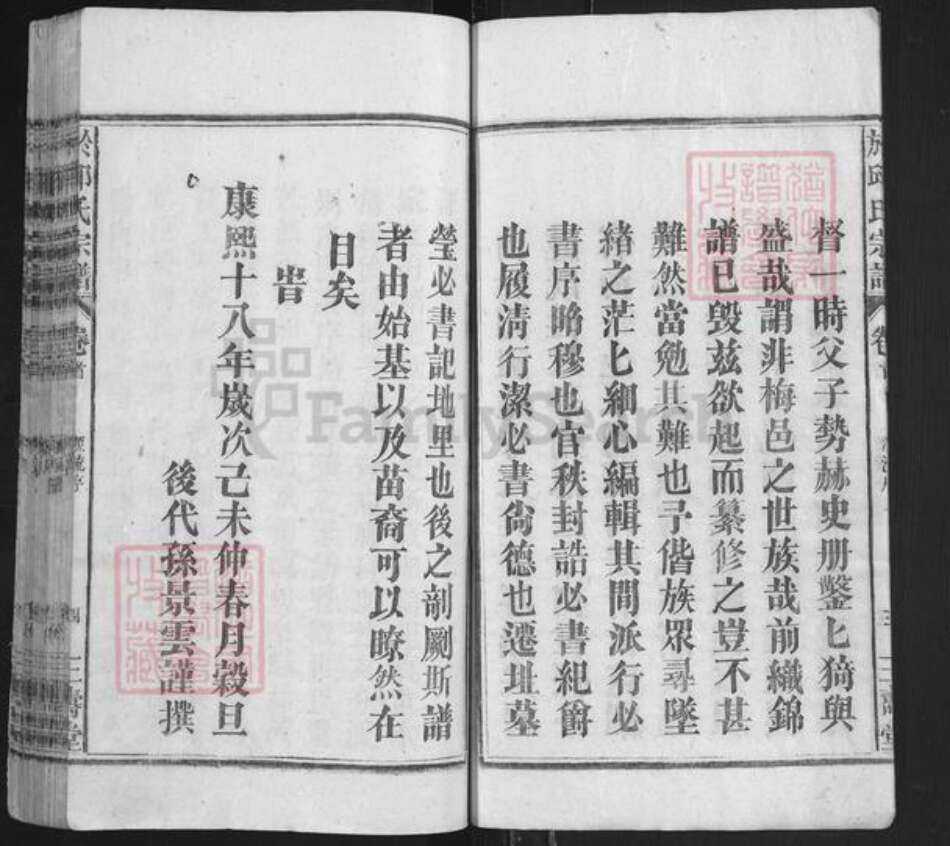 督一時父子勢赫史册鑿匕猗與
盛哉謂非梅邑之世族哉前織錦
譜已毀茲欲起而纂修之豈不甚
難然當勉其難也予偕族眾尋墜
緒之茫匕細心編輯其間派行必
書序昭穆也官秩封誥必書紀爵
也履清行潔必書尙德也遷址墓
瑩必書記地里也後之剞劂斯譜
者由始基以及苗裔可以瞭然在
目矣
旹
康熙十八年歲次己未仲春月穀旦
後代孫景雲謹撰
氏宗譜
卷首
三壽堂
FamilySearch